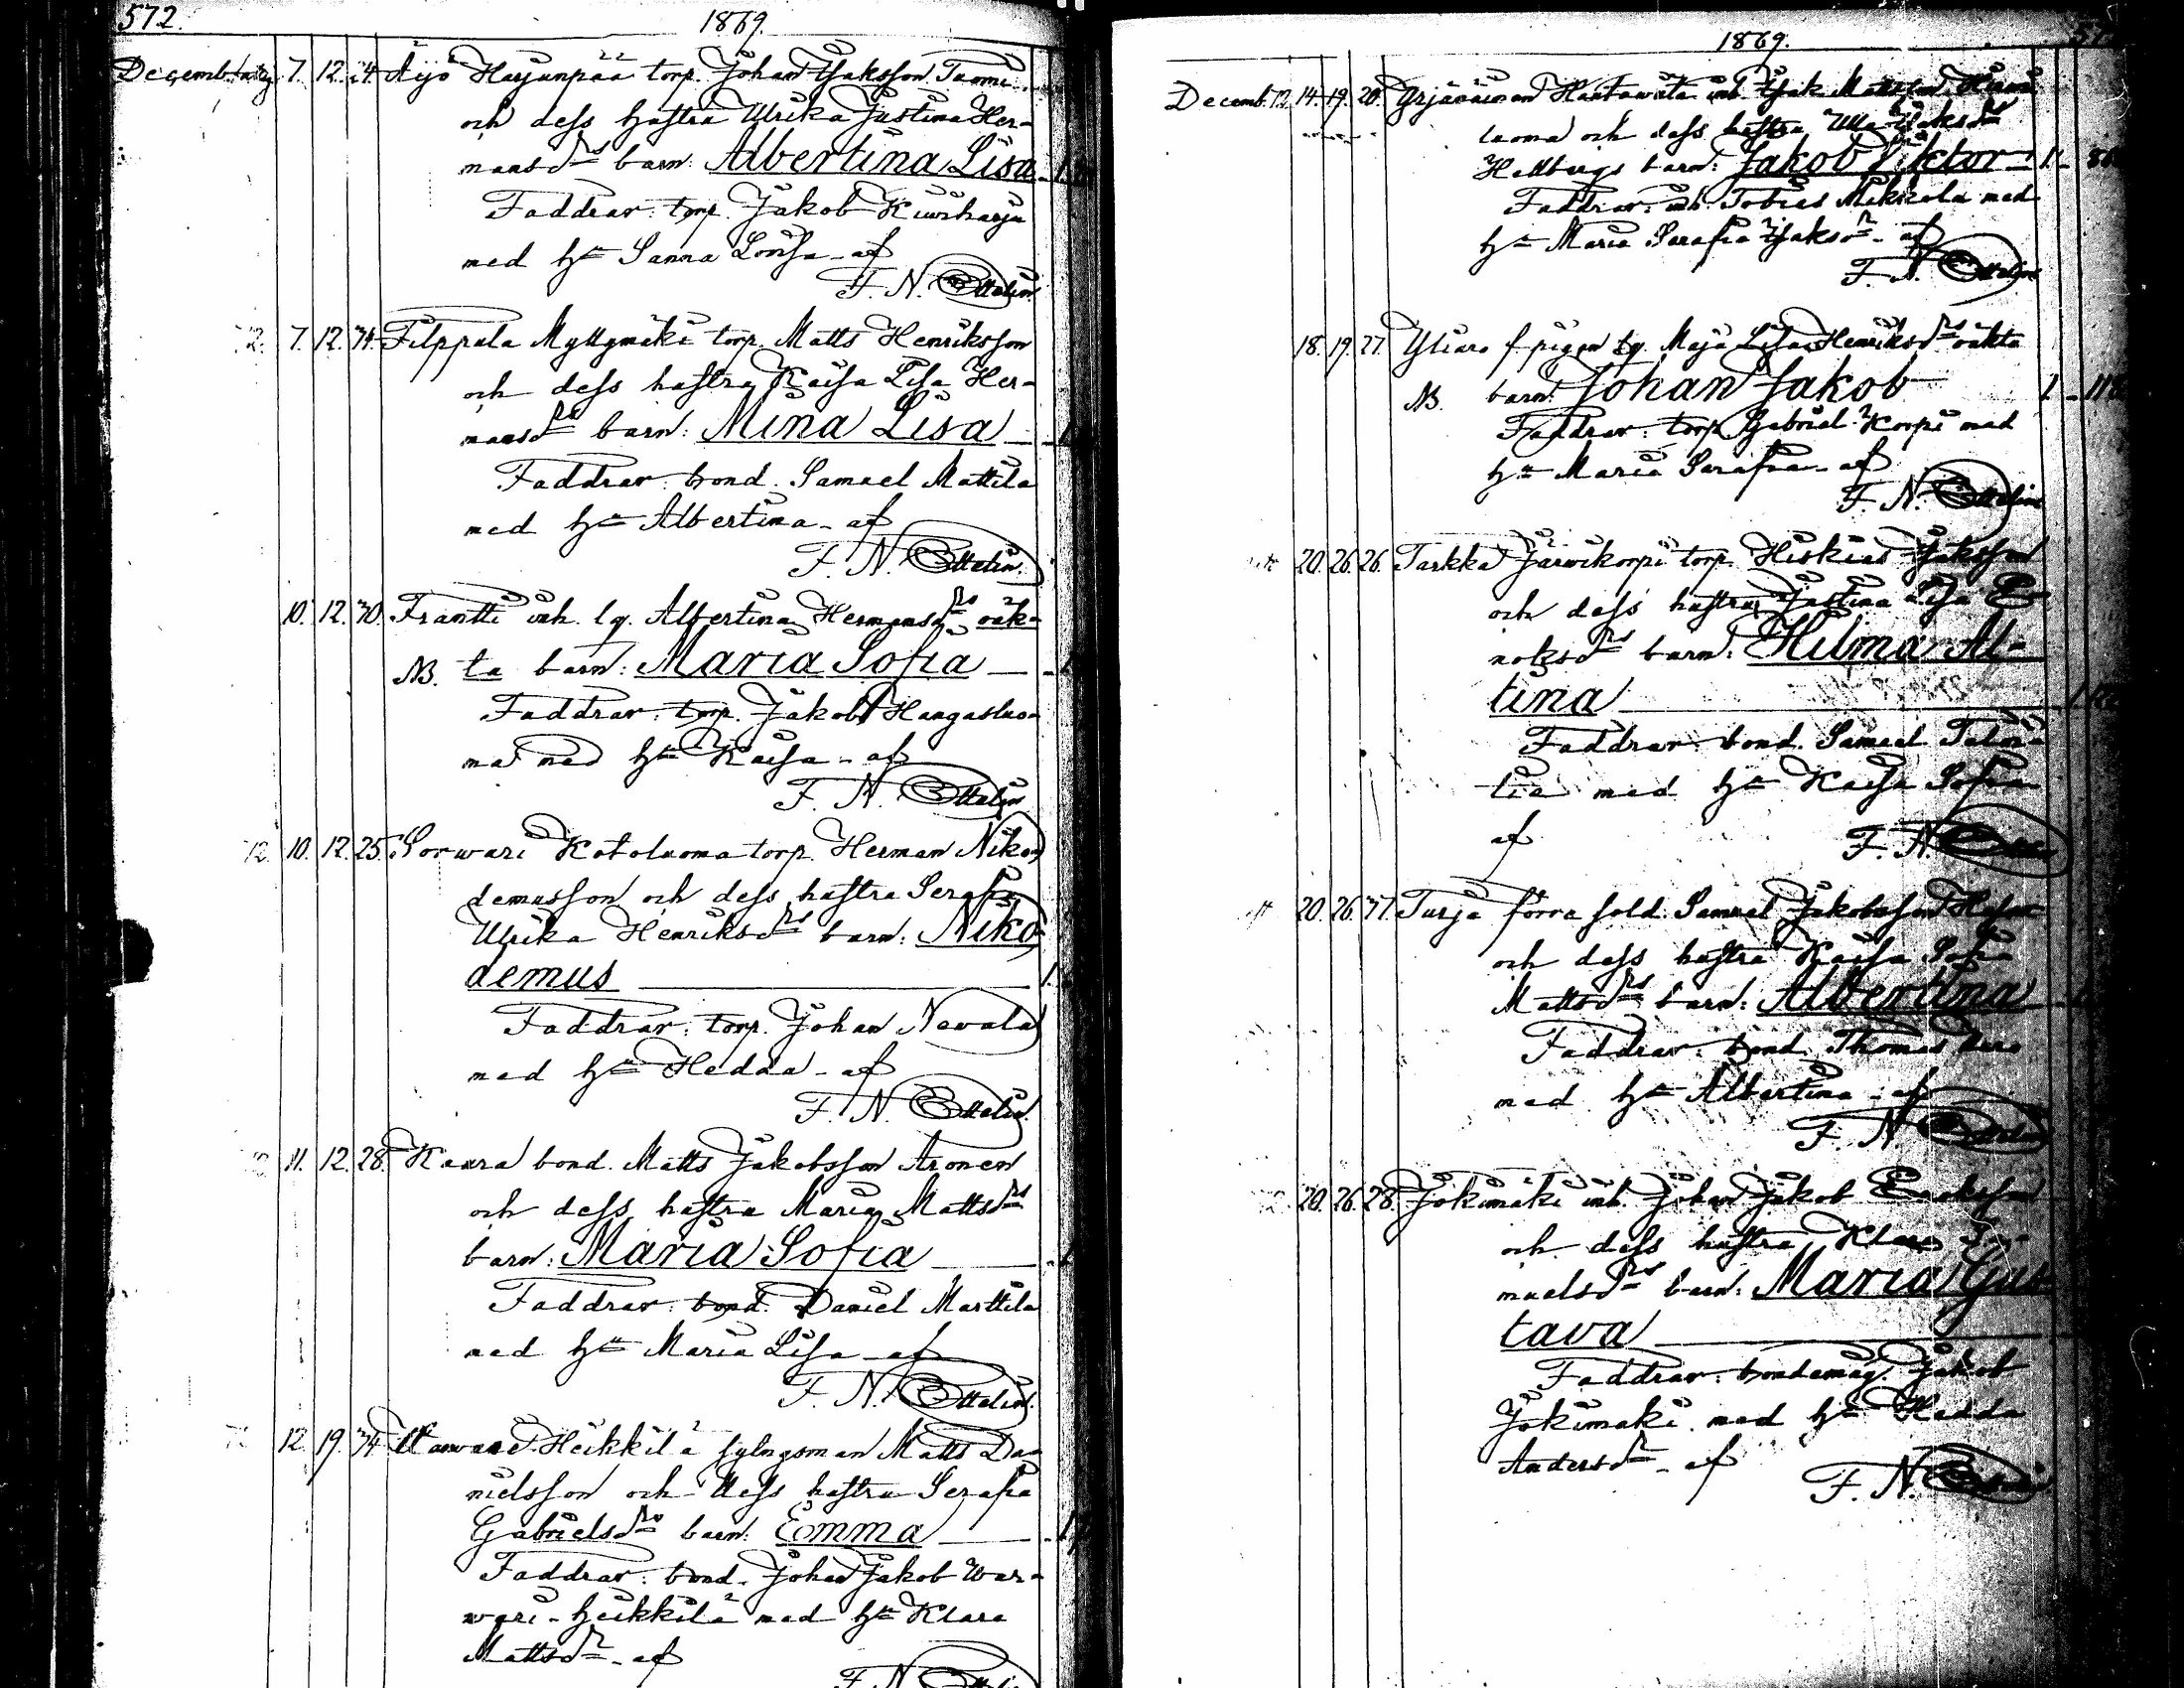 572.
1869.
7. 12. 24. Äijö Harjunpää torp. Johan Isaksson Tuomi
och dess hustru Ulrika Justina Her-
mansdrs barn: Albertina Lisa
Faddrar: torp. Jakob Kiwiharju
med hu Sanna Lovisa - af
F. N. Ottelin
7. 12. 34. Filppula Myllymäki torp. Matts Henriksson
och dess hustru Kaisa Lisa Her-
mansdrs barn: Mina Lisa
Faddrar: bond. Samuel Mattila
med hu Albertina - af
F. N. Ottelin.
10. 12. 30. Frantti inh. lg. Albertina Hermansdrs oäk-
NB. ta barn: Maria Sofia
Faddrar: torp. Jakob Hangasluo-
ma med hu Kaisa - af
F. N. Ottelin
12. 10. 12. 25. Sorwari Kotoluoma torp. Herman Niko-
demusson och dess hustru Serafia
Ulrika Henriksdrs barn: Niko-
demus
Faddrar: torp. Johan Nevala
med hu Hedda - af
F. N. Ottelin.
11. 12. 28. Kaura bond. Matts Jakobsson Aronen
och dess hustru Maria Mattsdrs
barn: Maria Sofia
Faddrar: bond. Daniel Marttila
med hu Maria Lisa - af
F. N. Ottelin.
12. 19. 34. Warwari Heikkilä sytningsman Matts Da-
nielsson och dess hustru Serafia
Gabrielsdrs barn: Emma
Faddrar: bond. Johan Jakob War-
wari-Heikkilä med hu Klara
Mattsdr - af
F. N. Ottelin
1869.
Decemb. 12. 14. 19. 20. Yrjänäinen Hautawiita inh. Isak Mattsson
luoma och dess hustru Ulla Isaksdrs
Hellbergs barn: Jakob Viktor 1
Faddrar: inh. Tobias Mikkola med
hu Maria Serafia Isaksdr - af
F. N. Ottelin
18. 19. 27. Yliaro f. pigan lg. Maja Lisa Henriksdrs oäkta
NB. barn: Johan Jakob 1
Faddrar: torp. Gabriel Korpi med
hu Maria Serafia - af
F. N. Ottelin
20. 26. 26. Tarkka Järwikorpi torp. Hiskias Isaksson
och dess hustru Justina Lisa E-
noksdrs barn: Hilma Al-
tina
Faddrar: bond. Samuel Talon-
tia med hu Kaisa Sofia
af F. N. Ottelin
20. 26. 37. Turja förra sold. Samuel Jakobsson
och dess hustru Kaisa Sofia
Mattsdrs barn: Albertina
Faddrar: bond. Thomas Aro
med hu Albertina - af
F. N. Ottelin
20. 26. 28. Jokimäki inh. Johan Jakob Enoksson
och dess hustru Klara Sa-
muelsdrs barn: Maria Gus-
tava
Faddrar: bondemåg. Jakob
Jokimäki med hu Hedda
Andersdr - af F. N. Ottelin